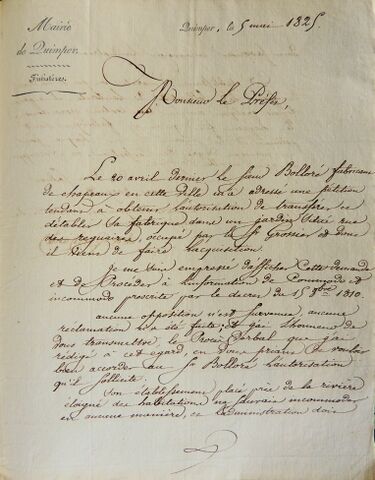 Mairie
de Quimper.
Fabriques.
Quimper, le 5 mai 1825.
Monsieur le Préfet,
Le 20 avril dernier le Sieur Bolloré fabricant
de chapeaux en cette ville m'a adressé une pétition
tendant à obtenir l'autorisation de transférer et
d'établir sa fabrique dans un jardin situé rue
des reguaires occupé par le Sr Grossier et dont
il vient de faire l'acquisition.
Je me suis empressé d'afficher cette demande
et de procéder à l'information de commodo et
incommodo prescrite par le décret du 15 8bre 1810.
aucune opposition n'est survenue, aucune
réclamation n'a été faite; et j'ai l'honneur de
vous transmettre, le Procès-Verbal que j'ai
rédigé à cet égard, en vous priant de vouloir
bien accorder au Sr Bolloré l'autorisation
qu'il sollicite.
Son établissement placé près de la rivière
éloigné des habitations ne saurait incommoder
en aucune manière, et l'administration doit